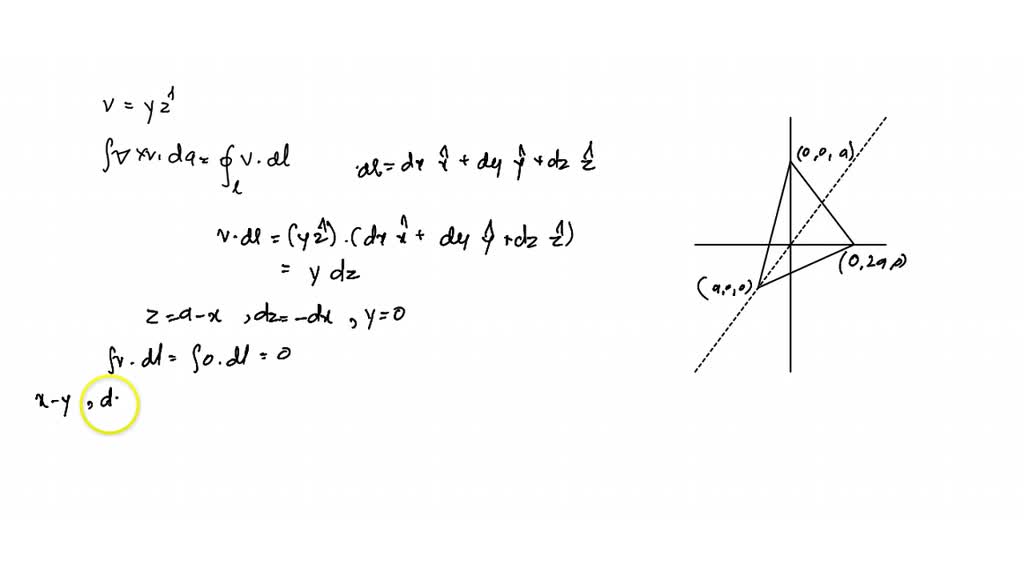 v = y ẑ
∫∇×v. da = ∮ₗ v. dl
dl = dx x̂ + dy ŷ + dz ẑ
v. dl = (y ẑ). (dx x̂ + dy ŷ + dz ẑ)
= y dz
z = a-x , dz = -dx , y=0
∫v. dl = ∫0. dl = 0
x-y , d.
(0,0,a)
(a,0,0)
(0,2a,0)